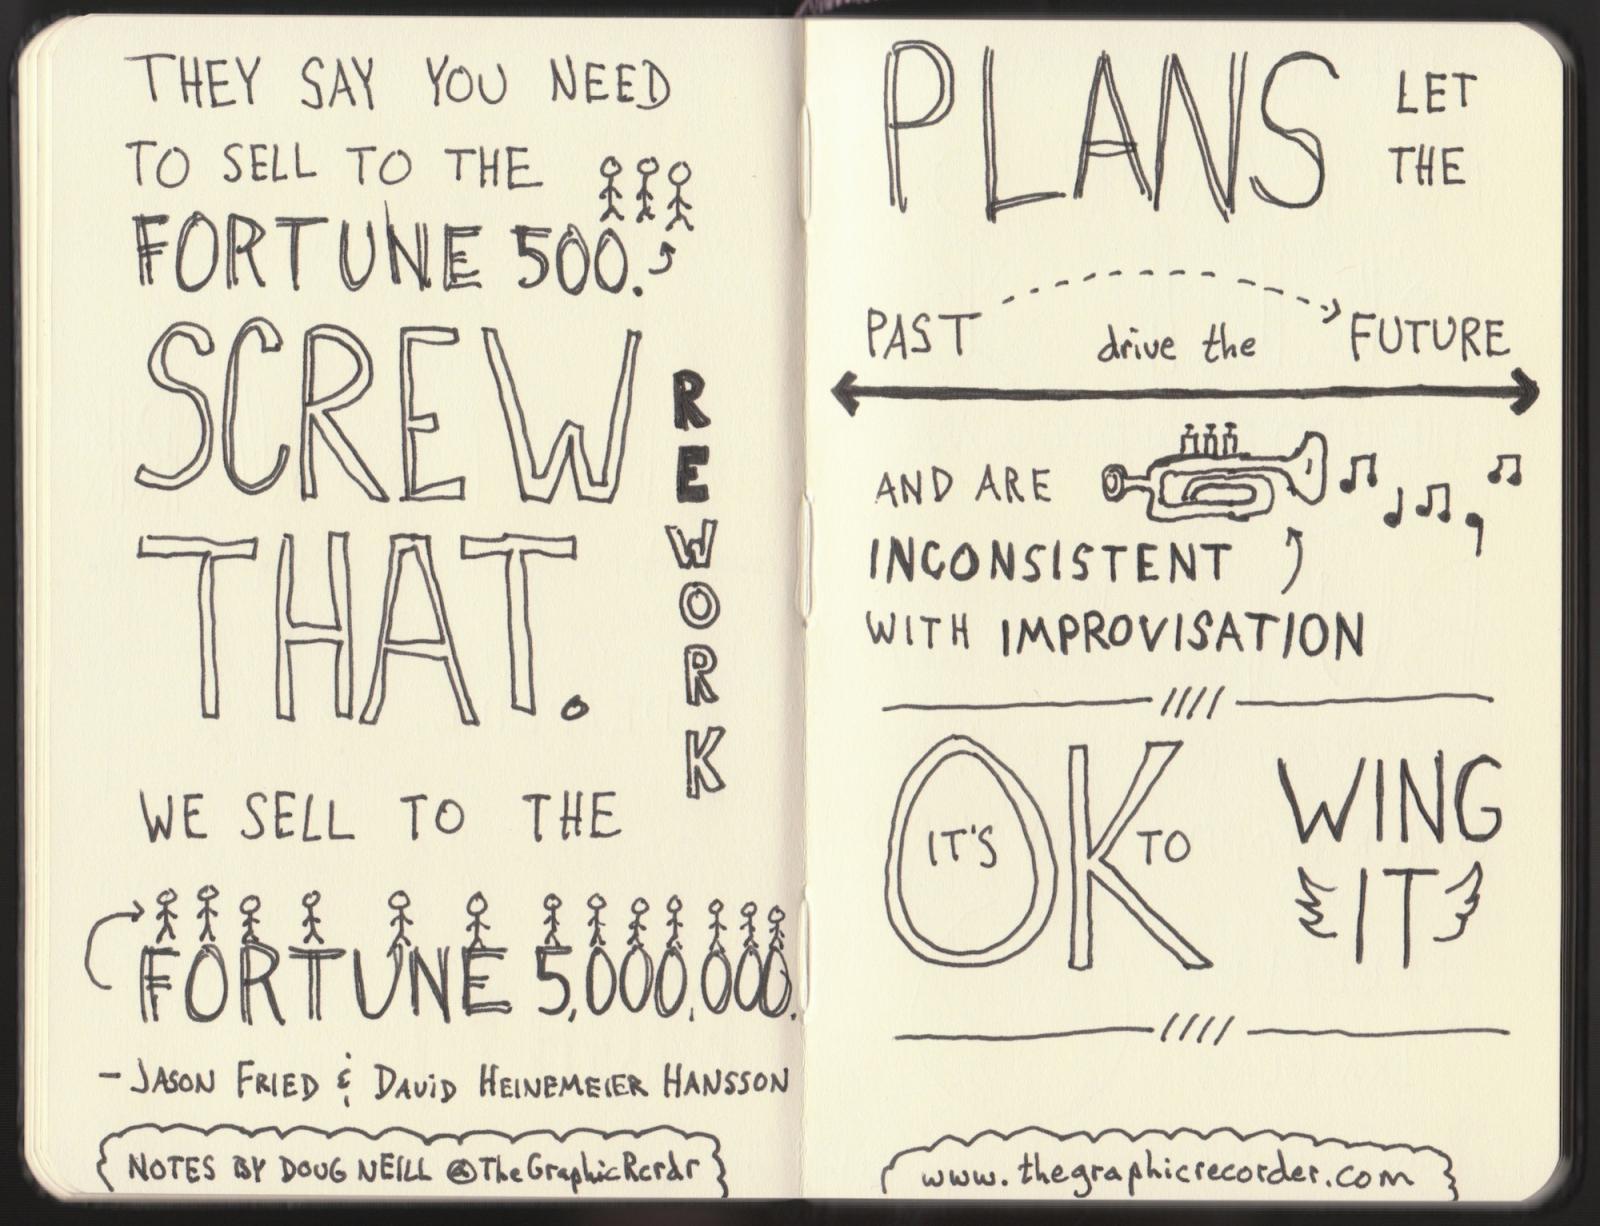 THEY SAY YOU NEED
TO SELL TO THE
FORTUNE 500.
SCREW
THAT.
REWORK
WE SELL TO THE
FORTUNE 5,000,000.
- JASON FRIED & DAVID HEINEMEIER HANSSON
NOTES BY DOUG NEILL @TheGraphicRcrdr
PLANS LET
THE
PAST drive the FUTURE
AND ARE
INCONSISTENT
WITH IMPROVISATION
IT'S OK TO WING
IT
www.thegraphicrecorder.com